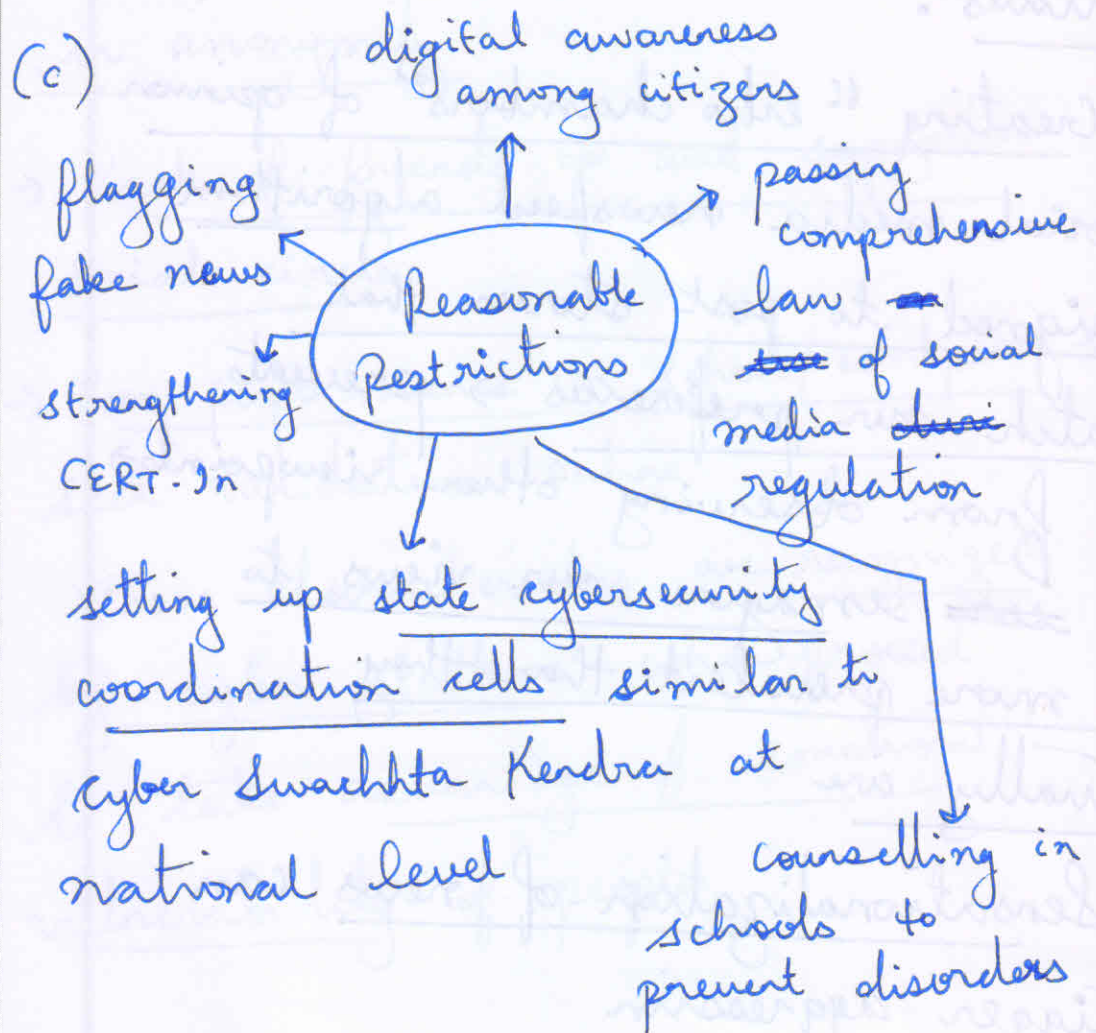 (c)
digital awareness
among citizens
flagging
fake news
passing
comprehensive
law
of social
media
regulation
Reasonable
restrictions
strengthening
CERT-In
setting up state cybersecurity
coordination cells similar to
cyber Swachhta Kendra at
national level
counselling in
schools to
prevent disorders